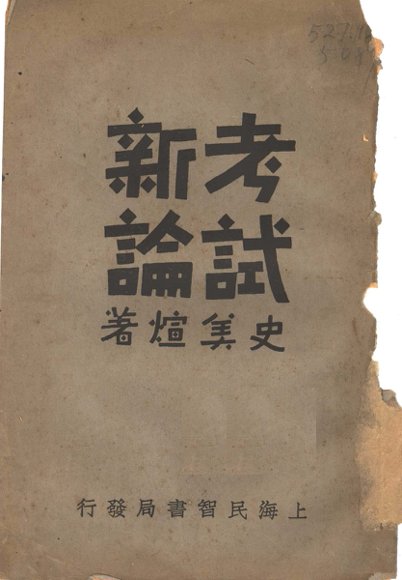 考試
新論
史美煊著
上海民智書局發行